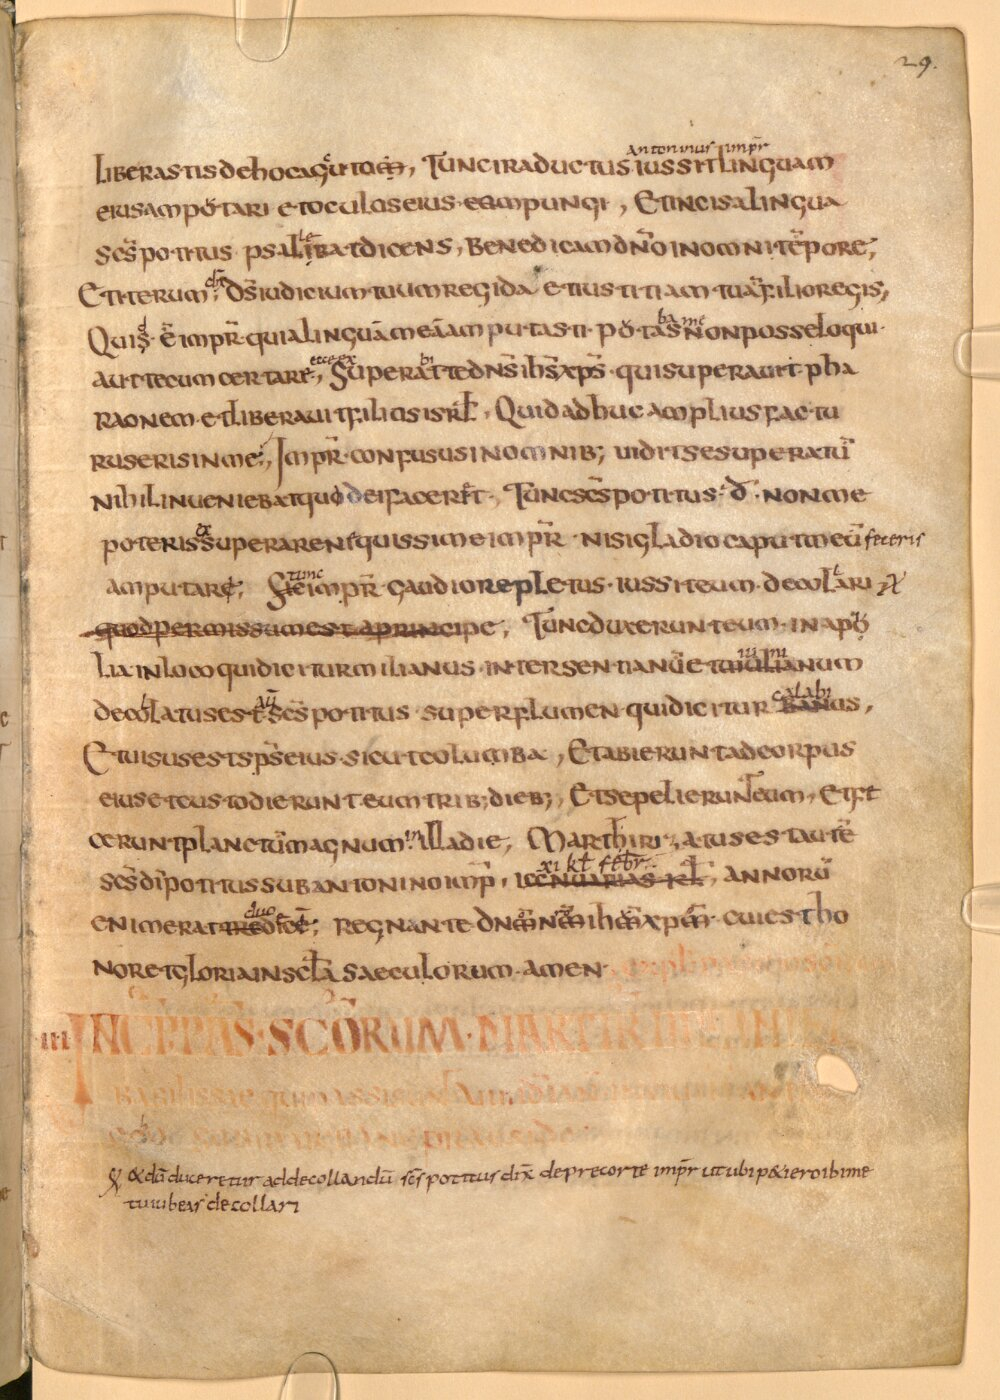 29.
antoninus imp̄r
liberastis de hoc agŏ̄ito tunc iraductus iussit linguam
eius ampŏtari et oculos eius conpungi, Et incisa lingua
sc̄s potitus psallebat dicens, Benedicam dn̄o in omni tēpore;
Et iterum d̄s iudicium tuum regi da et iustitiam tuā filio regis,
Quis ē imp̄r quia linguam meam putasti pŏtas non posse loqui
aut tecum certare, Superabit te dn̄s ih̄s xp̄s qui superauit pha
raonem et liberauit filios isrł, Quid adhuc amplius factu
rus eris in me, Imp̄r confusus in omnib; uidit se superatū
nihil inueniebat quod ei facer&t, Tunc sc̄s potitus đ non me
poteris superare nequissime imp̄r nisi gladio caput meū feceris
amputare, tunc imp̄r gaudio repletus iussit eum decollari
quod permissum est a principe, Tunc duxerunt eum in apŏ
lia in loco qui dicitur milianus inter gentianū et iulianum
decollatus est aū sc̄s potitus super flumen qui dicitur calabi banus,
Et uisus est sp̄s eius sicut columba, Et abierunt ad corpus
eius et custodierunt eum trib; dieb; Et sepelierunt eum, Et fe
cerunt planctū magnum in illa die, Marthirizatus est autē
sc̄s dī potitus sub antonino imp̄, xi kł febr̄ ienuarias kł, annorū
enim erat duo tredecē; regnante dn̄m nm̄ ihm̄ xpm̄ cui est ho
nor et gloria in scła saeculorum amen
iii INCP PAS SCORUM MARTIR
& dū duceretur ad decollandū sc̄s potitus dix̄ deprecor te imp̄r ut ubi p&iero ibi me
tu iubeas decollari